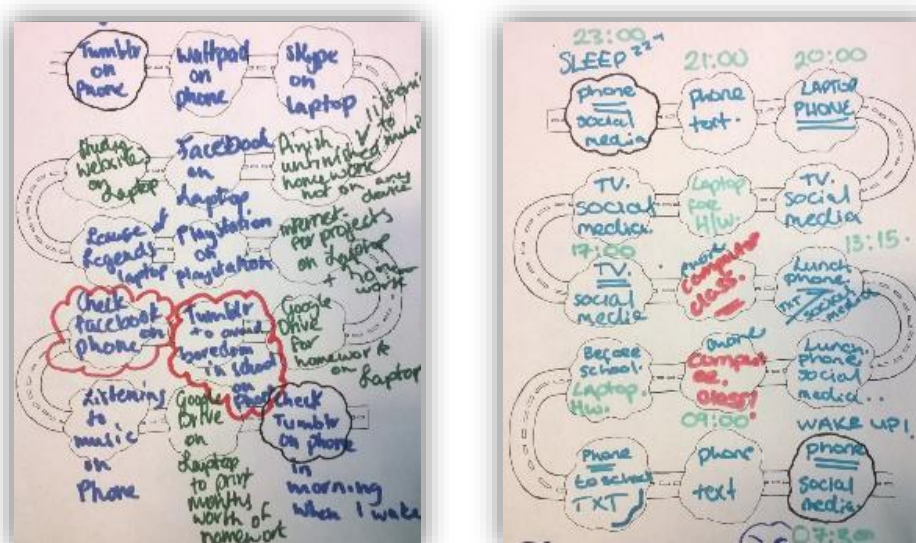 Tumblr
on
Phone
Wattpad
on
phone
Skype
on
Laptop
Study
website
on Laptop
Facebook
on
Laptop
Finish
unfinished
homework
not on any
device
listening
to
music
Legends
laptop
Playstation
on
playstation
Internet
for projects
on Laptop
+ home
work
Check
Facebook
on
phone
Tumblr
to avoid
boredom
in school
on
phone
Google
Drive
for
homework
on Laptop
Listening
to
music
on
Phone
Google
Drive
on
Laptop
to print
months
worth of
homework
Check
Tumblr
on phone
in
morning
when I wake
23:00
SLEEP
phone
social
media
21:00
phone
text.
20:00
LAPTOP
PHONE
TV.
social
media.
Laptop
for
H/W.
TV.
social
media
17:00
TV.
social
media
computer
class.
13:15.
Lunch
phone
TXT/social
media
Before
school.
Laptop.
HW.
Computer
class!
09:00
Lunch.
phone
social
media..
Phone
to school
TXT
phone
text
WAKE UP!
phone
social
media.
07:30